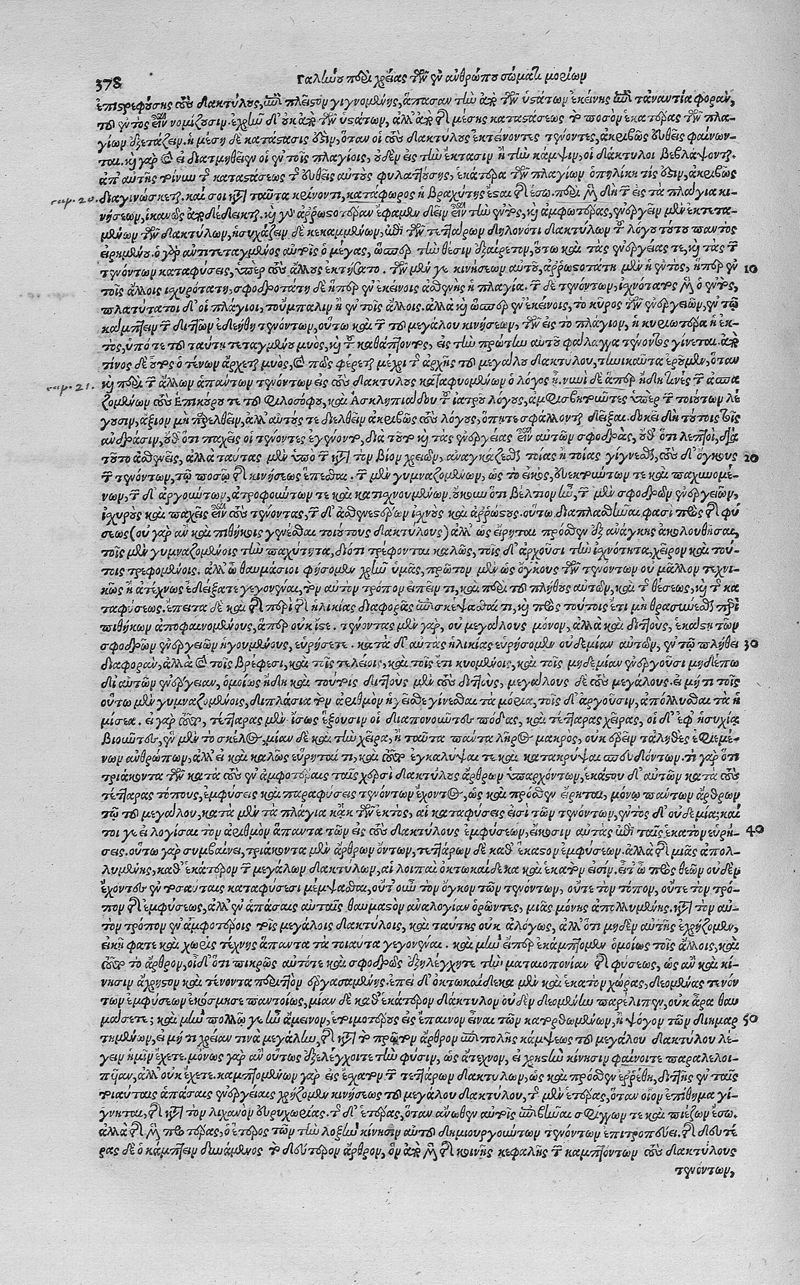 378 Γαληνοῦ περὶ χρείας τῶν ἐν ἀνθρώπου σώματι μορίων
ἐπιστρεφούσης τοὺς δακτύλους, ἐπὶ πλεῖστον γιγνομένης, ἅπασαν τὴν ἀπὸ τῶν ὑστάτων ἐκείνης ἐπὶ τἀναντία φορὰν,
τοῦ ἐντὸς εἶναι νομίζουσιν. ἐχρῆν δ' οὐκ ἀπὸ τῶν ὑστάτων, ἀλλ' ἀπὸ τῆς μέσης καταστάσεως τὸ ποσὸν ἑκατέρας τῶν πλα-
γίων ἐξετάζειν. ἡ μέση δὲ κατάστασις ἐστὶν, ὅταν οἱ τοὺς δακτύλους ἐκτείνοντες τένοντες, ἀκριβῶς εὐθεῖς φαίνων-
ται. καὶ γὰρ καὶ εἰ διατμηθεῖεν οἱ ἐν τοῖς πλαγίοις, οὐδὲν εἰς τὴν ἔκτασιν ἢ τὴν κάμψιν, οἱ δάκτυλοι βεβλάψονται.
ἀπ' αὐτῆς τοίνυν τῆς καταστάσεως τῆς εὐθείας αὐτοὺς φυλαττούσης, ἑκάτερα τῶν πλαγίων ὁπηλίκη τίς ἐστιν, ἀκριβῶς
cap. 20. διαγινώσκεται. καί σοι κατὰ ταῦτα κρίνοντι, κατάφωρος ἡ βραχύτης ἔσται ἡ ἔσω. περὶ μὲν δὴ τῶν εἰς τὰ πλάγια κι-
νήσεων, ἱκανῶς ἀποδέδεικται. καὶ γὰρ ἀρρωστοτέραν ἔφαμεν δεῖν εἶναι τὴν ἐντὸς, καὶ ἀμφοτέρας, ἐνεργεῖν μὲν ἐκτετα-
μένων τῶν δακτύλων, ἡσυχάζειν δὲ κεκαμμένων, ἐπὶ τῶν τεττάρων δηλονότι δακτύλων τοῦ λόγου τούτου παντὸς
εἰρημένου. ὁ γὰρ ἀντιτεταγμένος αὐτοῖς ὁ μέγας, ὥσπερ τὴν θέσιν ἐξαίρετον, οὕτω καὶ τὰς ἐνεργείας τε, καὶ τὰς τῶν
τενόντων καταφύσεις, ὑπὲρ τοὺς ἄλλους ἐκτήσατο. τῶν μέν γε κινήσεων αὐτοῦ, ἀρρωστοτάτη μὲν ἡ ἐντὸς, ἥπερ ἐν 10
τοῖς ἄλλοις ἰσχυροτάτη, σφοδροτάτη δὲ ἥπερ ἐν ἐκείνοις ἀσθενὴς ἡ πλαγία. τῶν δὲ τενόντων, ἰσχνότατος μὲν ὁ ἐντὸς,
πλατύτατοι δ' οἱ πλάγιοι, τοὔμπαλιν ἢ ἐν τοῖς ἄλλοις. ἀλλὰ καὶ ὥσπερ ἐν ἐκείνοις, τὸ κῦρος τῶν ἐνεργειῶν, ἐν τῷ
κάμπτειν τῶν διττῶν ἐδεήθη τενόντων, οὕτω καὶ τῶν τοῦ μεγάλου κινήσεων, τῶν εἰς τὸ πλάγιον, ἡ κυριωτέρα ἡ ἐκ-
τὸς, ὑπό τε τοῦ ταύτῃ τεταγμένου μυὸς, καὶ τοῦ καθάπτοντος, εἰς τὴν πρώτην αὐτοῦ φάλαγγα τένοντος γίνεται. ἀπὸ
τίνος δὲ οὗτος ὁ τένων ἄρχεται μυὸς, καὶ πῶς φέρεται μέχρι τῆς ἀρχῆς τοῦ μεγάλου δακτύλου, τηνικαῦτα ἐροῦμεν, ὅταν
cap. 21. καὶ περὶ τῶν ἄλλων ἁπάντων τενόντων εἰς τοὺς δακτύλους καταφυομένων ὁ λόγος ᾖ. νυνὶ δὲ ἅπερ ἤδη τινὲς τῶν ἀσπα-
ζομένων τοὺς Ἐπικούρου τε τοῦ φιλοσόφου, καὶ Ἀσκληπιάδου τοῦ ἰατροῦ λόγους, ἀμφισβητοῦντες ὑπὲρ τῶν τοιούτων λέ-
γουσιν, ἄξιον μὴ παρελθεῖν, ἀλλ' αὐτούς τε διελθεῖν ἀκριβῶς τοὺς λόγους, ὅπῃ τε σφάλλονται δεῖξαι. δοκεῖ δὴ τούτοις τοῖς
ἀνδράσιν, οὐχ ὅτι παχεῖς οἱ τένοντες ἐγένοντο, διὰ τοῦτο καὶ τὰς ἐνεργείας εἶναι αὐτῶν σφοδρὰς, οὐχ ὅτι λεπτοὶ, διὰ
τοῦτο ἀσθενεῖς, ἀλλὰ ταύτας μὲν ὑπὸ τῶν κατὰ τὸν βίον χρειῶν, ἀναγκάζεσθαι τοίας ἢ τοίας γίγνεσθαι, τοὺς δ' ὄγκους 20
τῶν τενόντων, τῷ ποσῷ τῆς κινήσεως ἕπεσθαι. τῶν μὲν γυμναζομένων, ὡς τὸ εἰκὸς, εὐεκτούντων τε καὶ παχυνομέ-
νων, τῶν δ' ἀργούντων, ἀτροφούντων τε καὶ κατισχνουμένων. οὔκουν ὅτι βέλτιον ἦν, τῶν μὲν σφοδρῶν ἐνεργειῶν,
ἰσχυροὺς καὶ παχεῖς εἶναι τοὺς τένοντας, τῶν δ' ἀσθενεστέρων ἰσχνοὺς καὶ ἀρρώστους. οὕτω διαπλασθῆναί φασι πρὸς τῆς φύ
σεως (οὐ γὰρ ἂν καὶ πιθήκοις γενέσθαι τοιούτους δακτύλους) ἀλλ' ὡς εἴρηται πρόσθεν ἐξ ἀνάγκης ἀκολουθῆσαι,
τοῖς μὲν γυμναζομένοις τὴν παχύτητα, διότι τρέφονται καλῶς, τοῖς δ' ἀργοῦσι τὴν ἰσχνότητα, χεῖρον καὶ τού-
τοις τρεφομένοις. ἀλλ' ὦ θαυμάσιοι φήσομεν χρῆν ὑμᾶς, πρῶτον μὲν ὡς ὄγκους τῶν τενόντων οὐ μᾶλλον τεχνι-
κῶς ἢ ἀτέχνως ἐδείξατε γεγονέναι, τὸν αὐτὸν τρόπον εἰπεῖν τι, καὶ περὶ τοῦ πλήθους αὐτῶν, καὶ τῆς θέσεως, καὶ τῆς κα
ταφύσεως. ἔπειτα δὲ καὶ τῆς παρὰ τῆς ἡλικίας διαφορᾶς ἐπισκέψασθαί τι, καὶ πρὸς τούτοις ἔτι μὴ θρασύνεσθαι περὶ
πιθήκων ἀποφαινομένους, ἅπερ οὐκ ἴστε. τένοντας μὲν γὰρ, οὐ μεγάλους μόνον, ἀλλὰ καὶ διττοὺς, ἑκάστῃ τῶν
σφοδρῶν ἐνεργειῶν ἡγουμένους, εὑρήσετε. κατὰ δ' αὖ τὰς ἡλικίας εὑρήσομεν οὐδεμίαν αὐτῶν, ἐν τῷ πλήθει 30
διαφορὰν, ἀλλὰ καὶ τοῖς βρέφεσι, καὶ τοῖς τελείοις, καὶ τοῖς ἔτι κυομένοις, καὶ τοῖς μηδεμίαν ἐνεργοῦσι μηδέπω
δι' αὐτῶν ἐνέργειαν, ὁμοίως ἤδη καὶ τούτοις διττοὺς μὲν τοὺς διττοὺς, μεγάλους δὲ τοὺς μεγάλους. εἰ μή τι τοῖς
οὕτω μὲν γυμναζομένοις, διπλάσια τὸν ἀριθμὸν ἡγεῖσθε γίνεσθαι τὰ μόρια, τοῖς δ' ἀργοῦσιν, ἀπόλλυσθαι τὰ ἡ
μίσεα. εἰ γὰρ οὕτως, τέτταρας μὲν ἴσως ἕξουσιν οἱ διαπονοῦντες πόδας, καὶ τέτταρας χεῖρας, οἱ δ' ἐφ' ἡσυχίας
βιοῦντες, ἓν μὲν τὸ σκέλος, μίαν δὲ καὶ τὴν χεῖρα, ἢ ταῦτα πάντα λῆρος μακρὸς, οὐχ εὑρεῖν τἀληθὲς ἐφιεμέ-
νων ἀνθρώπων, ἀλλ' εἰ καὶ καλῶς εὕρηταί τι, καὶ τοῦτο ἐγκαλύψαι τε καὶ κατακρύψαι σπευδόντων. τί γὰρ ὅτι
τριάκοντα τῶν κατὰ τοὺς ἐν ἀμφοτέραις ταῖς χερσὶ δακτύλους ἄρθρων ὑπαρχόντων, ἑκάστου δ' αὐτῶν κατὰ τοὺς
τέτταρας τόπους, ἐμφύσεις καὶ παραφύσεις τενόντων ἔχοντος, ὡς καὶ πρόσθεν εἴρηται, μόνῳ πάντων ἄρθρων
τῷ τοῦ μεγάλου, κατὰ μὲν τὰ πλάγια κἀκ τῶν ἐκτὸς, αἱ καταφύσεις εἰσὶ τῶν τενόντων, ἐντὸς δ' οὐδεμία; καί
τοι γε εἰ λογίσαι τὸν ἀριθμὸν ἅπαντα τῶν εἰς τοὺς δακτύλους ἐμφύσεων, εἴκοσιν αὐτὰς ἐπὶ ταῖς ἑκατὸν εὑρή- 40
σεις. οὕτω γὰρ συμβαίνει, τριάκοντα μὲν ἄρθρων ὄντων, τεττάρων δὲ καθ' ἕκαστον ἐμφύσεων. ἀλλὰ τῆς μιᾶς ἀπολ-
λυμένης, καθ' ἑκάτερον τῶν μεγάλων δακτύλων, αἱ λοιπαὶ ὀκτωκαίδεκα καὶ ἑκατόν εἰσιν. εἶτ' ὦ πρὸς θεῶν οὐδὲν
ἔχοντες ἐν τοσαύταις καταφύσεσι μέμψασθαι, οὔτ' οὖν τὸν ὄγκον τῶν τενόντων, οὔτε τὸν τόπον, οὔτε τὸν τρό-
πον τῆς ἐμφύσεως, ἀλλ' ἐν ἁπάσαις αὐταῖς θαυμαστὸν ἀναλογίαν ὁρῶντες, μιᾶς μόνης ἀπολλυμένης. κατὰ τὸν αὐ-
τὸν τρόπον ἐν ἀμφοτέροις τοῖς μεγάλοις δακτύλοις, καὶ ταύτης οὐκ ἀλόγως, ἀλλ' ὅτι μηδὲν αὐτῆς ἐχρῄζομεν,
εἰκῆ φατε καὶ χωρὶς τέχνης ἅπαντα τὰ τοιαῦτα γεγονέναι. καὶ μὴν εἴπερ ἐκάμπτομεν ὁμοίως τοῖς ἄλλοις, καὶ
τοῦτο τὸ ἄρθρον, οἶδ' ὅτι πικρῶς αὐτό τε καὶ σφοδρῶς ἐξηλέγχητε τὴν ματαιοπονίαν τῆς φύσεως, ὡς ἂν καὶ κί-
νησιν ἄχρηστον καὶ τένοντα περιττὸν ἐργασαμένης. ἐπεὶ δ' ὀκτωκαίδεκα μὲν καὶ ἑκατὸν χώρας, δεομένας τενόν
των ἐμφύσεων ἐκόσμησε παντοίως, μίαν δὲ καθ' ἑκάτερον δάκτυλον οὐδὲν δεομένην παρέλιπεν, οὐκ ἄρα θαυ
μάσετε; καὶ μὴν πολλῷ γε ἦν ἄμεινον, ἑτοιμοτέρους εἰς ἔπαινον εἶναι τῶν κατορθωμένων, ἢ ψόγον τῶν διημαρ 50
τημένων, εἰ μή τι χρείαν τινὰ μεγάλην, τῆς κατὰ τὸ πρῶτον ἄρθρον ἐπὶ πολλῆς κάμψεως τοῦ μεγάλου δακτύλου λέ-
γειν ἡμῖν ἔχετε. μόνως γὰρ ἂν οὕτως ἐξελέγχοιτε τὴν φύσιν, ὡς ἄτεχνον, εἰ χρηστὴν κίνησιν φαίνοιτε παραλελοι-
πυῖαν, ἀλλ' οὐκ ἔχετε. καμπτομένων γὰρ εἰς ἔσχατον τῶν τεττάρων δακτύλων, ὡς καὶ πρόσθεν ἐρρέθη, διττῆς ἐν ταῖς
τοιαύταις ἁπάσαις ἐνεργείαις χρῄζομεν κινήσεως τοῦ μεγάλου δακτύλου. τῆς μὲν ἑτέρας, ὅταν οἷον ἐπίθημα γί-
γνηται, τῆς κατὰ τὸν λιχανὸν εὐρυχωρίας. τῆς δ' ἑτέρας, ὅταν ἄνωθεν αὐτοῖς ἐπιβαίνῃ σφίγγων τε καὶ πιέζων ἔσω.
ἀλλὰ τῆς μὲν προτέρας, ὁ ἕτερος τῶν τὴν λοξὴν κίνησιν αὐτοῦ δημιουργούντων τενόντων ἐπιτροπεύει. τῆς δευτέ
ρας δὲ ὁ κάμπτειν δυνάμενος τὸ δεύτερον ἄρθρον, ὃν ἀπὸ μὲν τῆς κοινῆς κεφαλῆς τῶν καμπτόντων τοὺς δακτύλους
τενόντων,